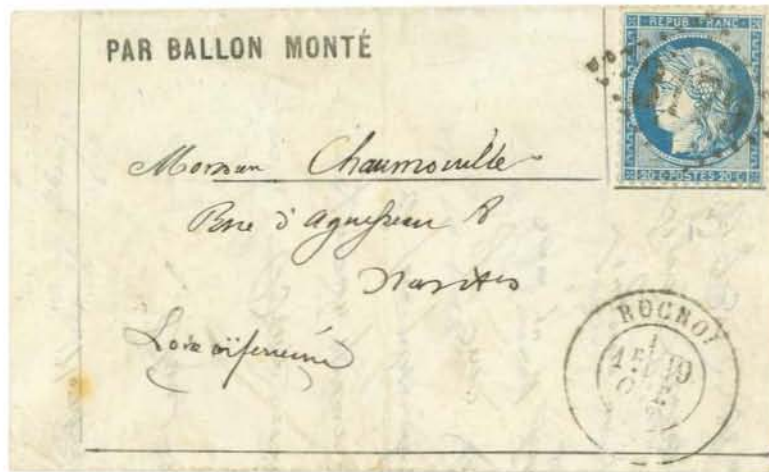 PAR BALLON MONTÉ
REPUB FRANC
20 C POSTES 20 C
Monsieur Chaumouille
Rue d'Aguesseau 8
Nantes
Loire inférieure
ROCROI
19